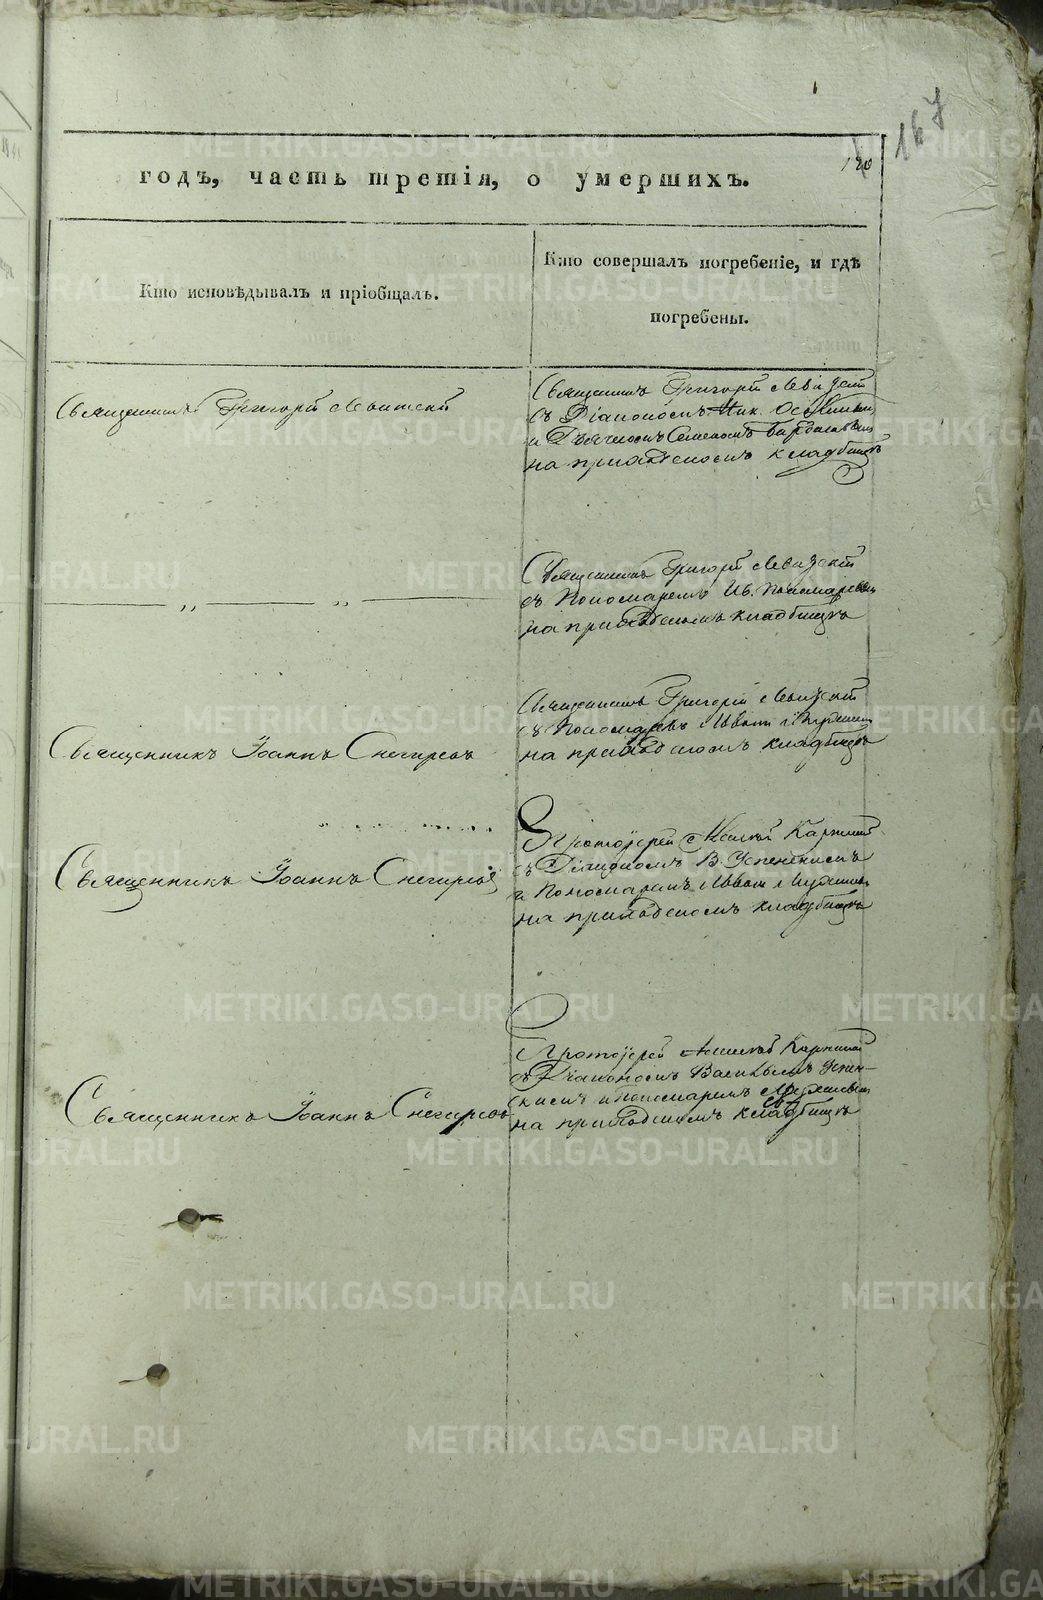 167
120
годъ, часть третія, о умершихъ.
Кто исповѣдывалъ и пріобщалъ.
Кто совершалъ погребеніе, и гдѣ
погребены.
Священникъ Григорій Левитскій
Священникъ Григорій Левитскій
съ Діакономъ Ник.
и Дьячкомъ Семеномъ
на приходскомъ кладбищѣ
— „ — „ —
Священникъ Григорій Левитскій
съ Пономаремъ Ив. Пономаревымъ
на приходскомъ кладбищѣ
Священникъ Іоаннъ Снегиревъ
Священникъ Григорій Левитскій
съ Пономаремъ
на приходскомъ кладбищѣ
Священникъ Іоаннъ Снегиревъ
Протоіерей Карпинскій
съ Діакономъ В. Успенскимъ
и Пономаремъ
на приходскомъ кладбищѣ
Священникъ Іоаннъ Снегиревъ
Протоіерей Карпинскій
съ Діакономъ Васильемъ Успен-
скимъ и Пономаремъ
на приходскомъ кладбищѣ
METRIKI.GASO-URAL.RU